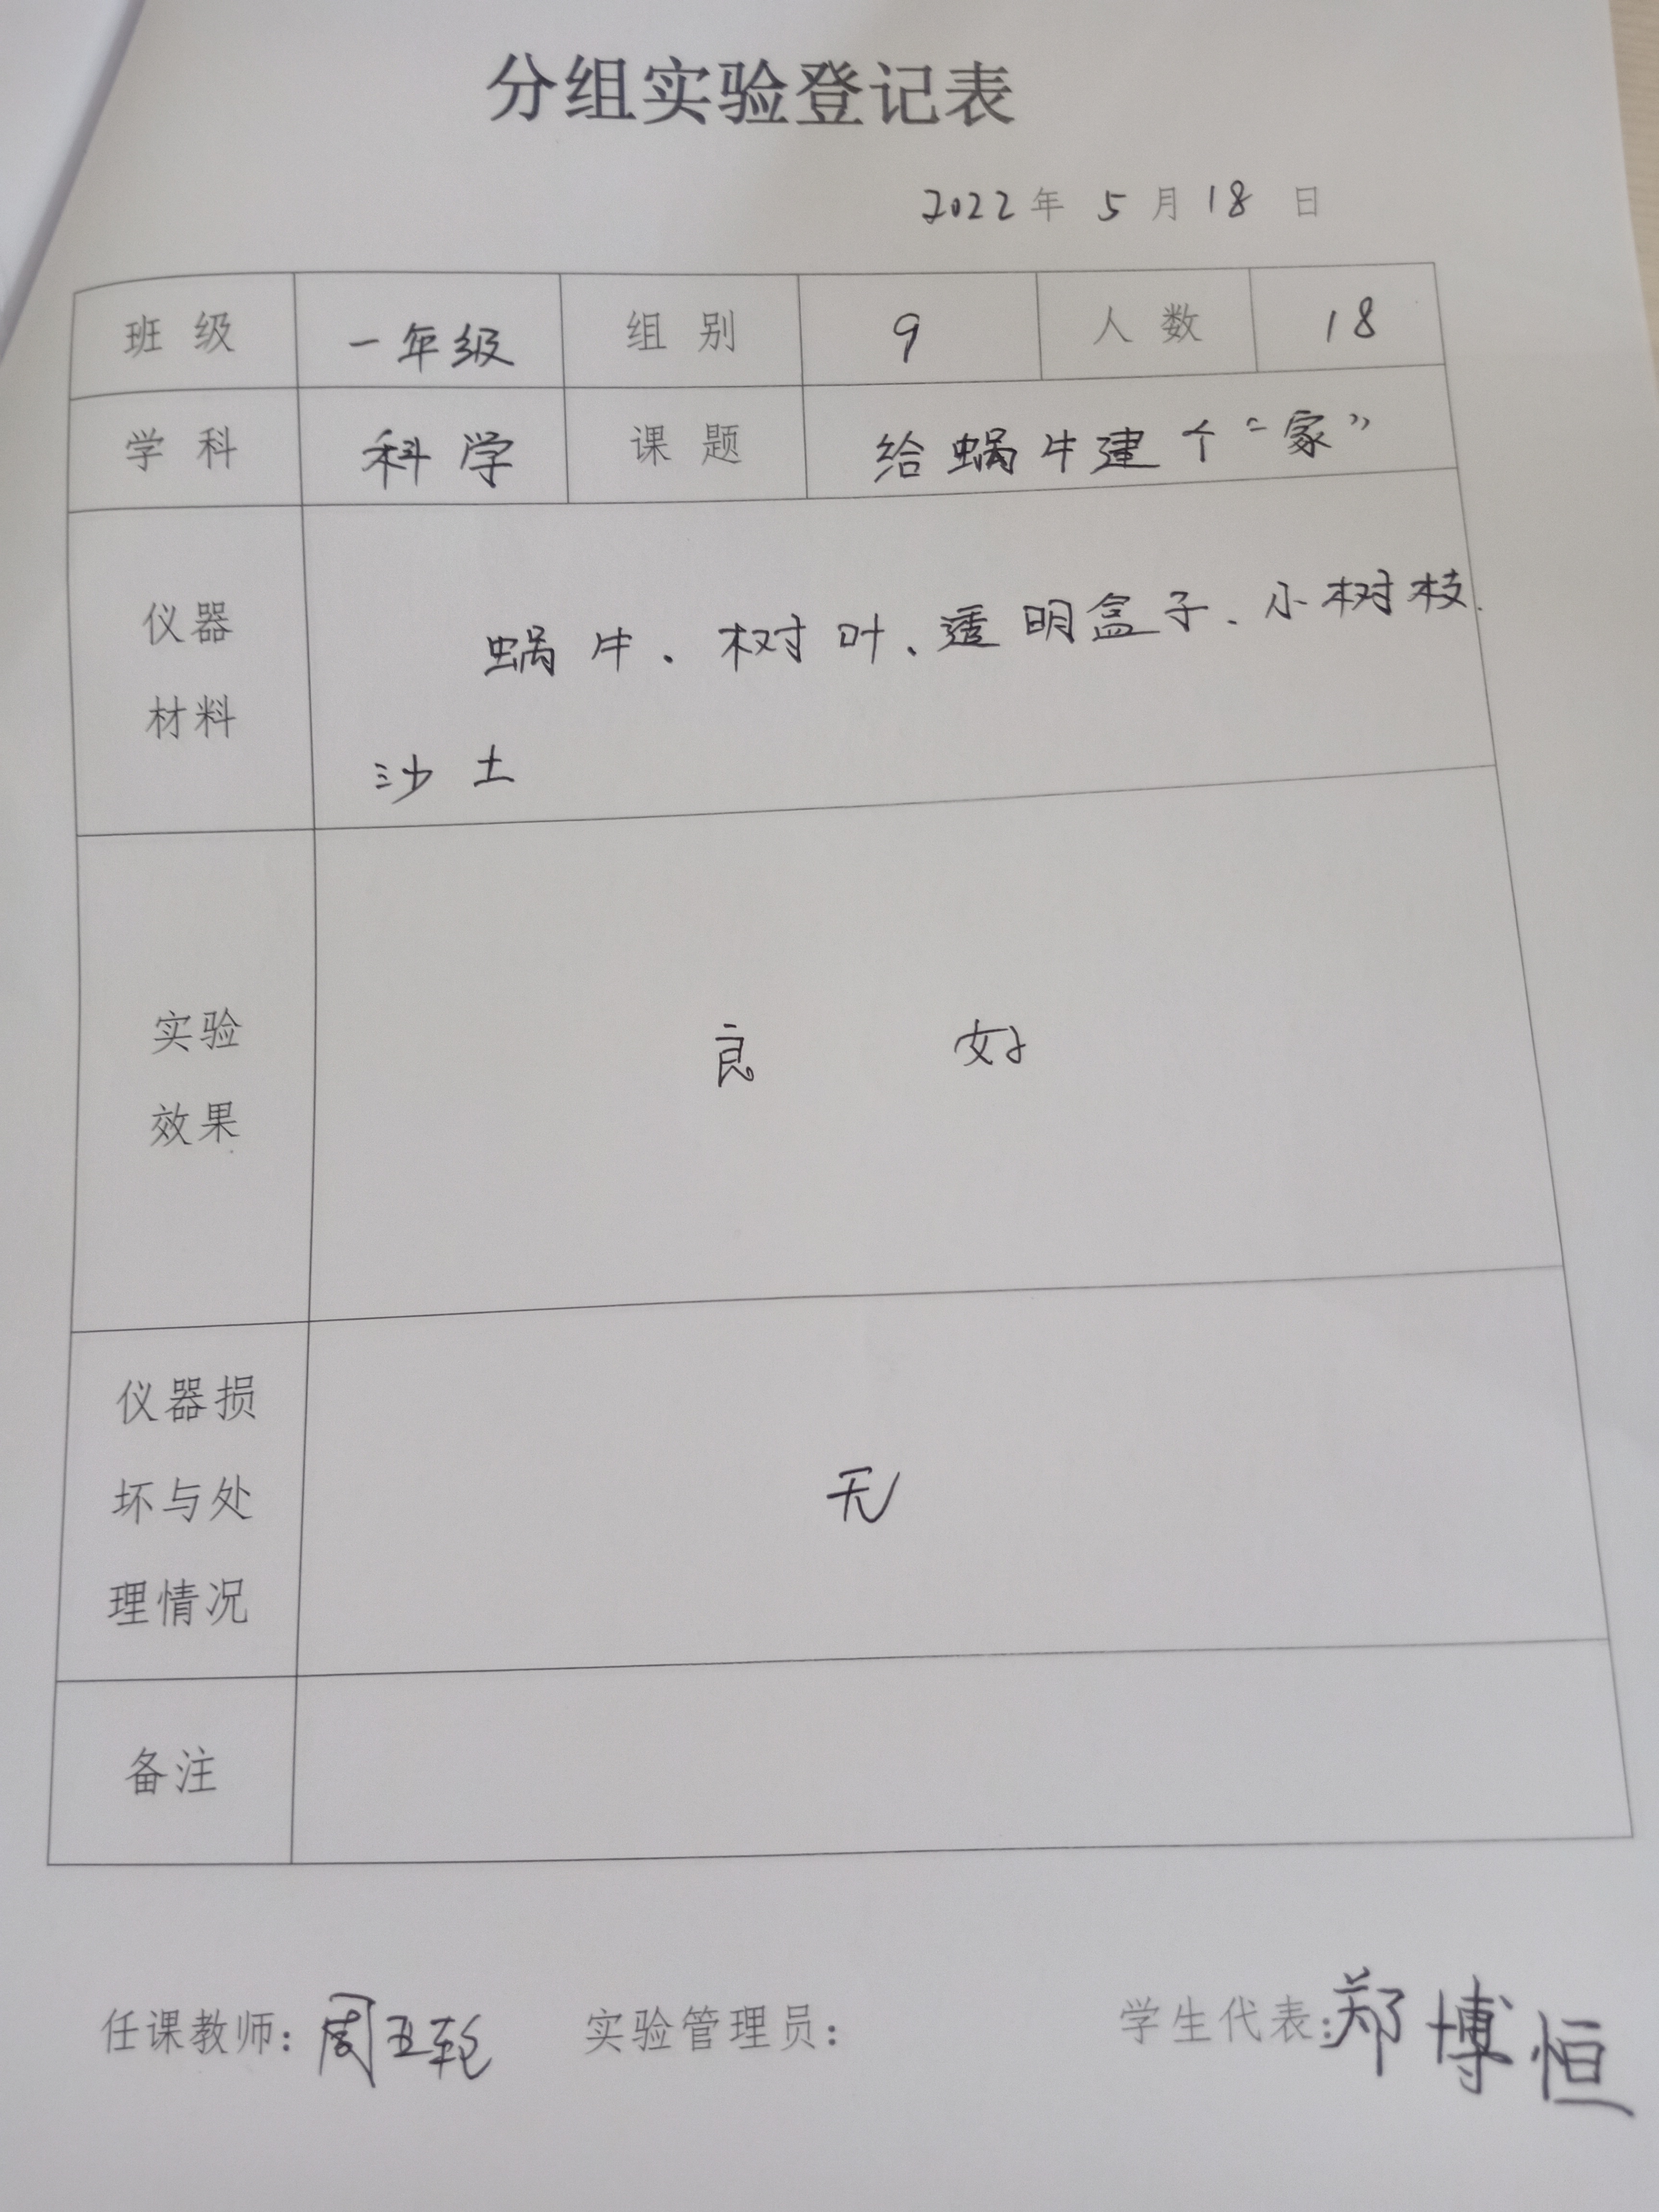 分组实验登记表
2022年 5月18日
班级 一年级 组别 9 人数 18
学科 科学 课题 给蜗牛建个“家”
仪器
材料
蜗牛、树叶、透明盒子、小树枝、
沙土
实验
效果
良 好
仪器损
坏与处
理情况
无
备注
任课教师：周五轮 实验管理员： 学生代表：郑博恒